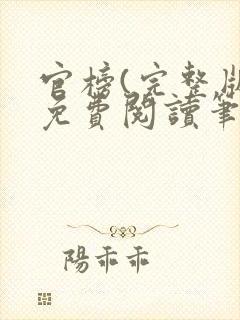 官榜(完整版
免費閱讀筆
陽乖乖